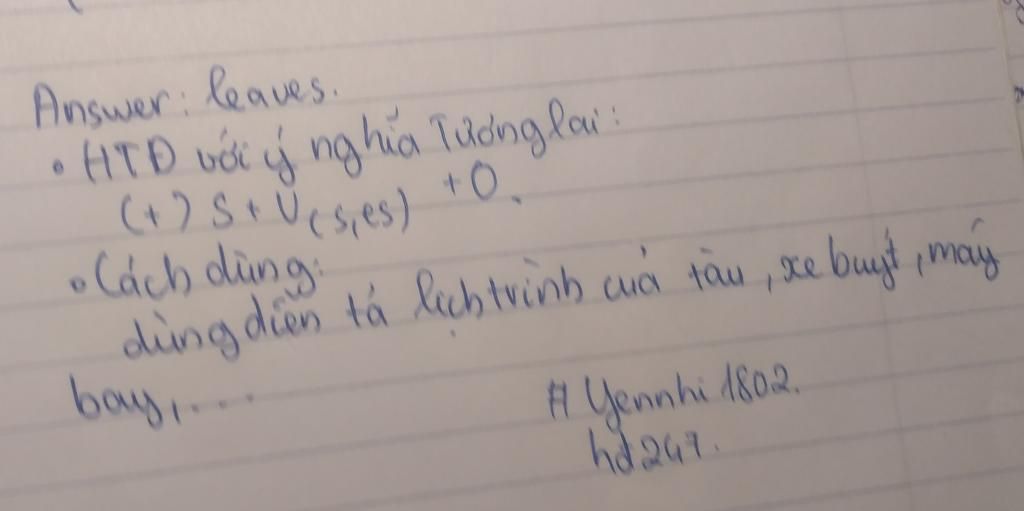 Answer: leaves.
• HTĐ với ý nghĩa Tương lai:
(+) S + V(s,es) + O.
• Cách dùng:
dùng diễn tả lịch trình của tàu, xe buýt, máy
bay,....
# Yennhi 1802.
hd247.